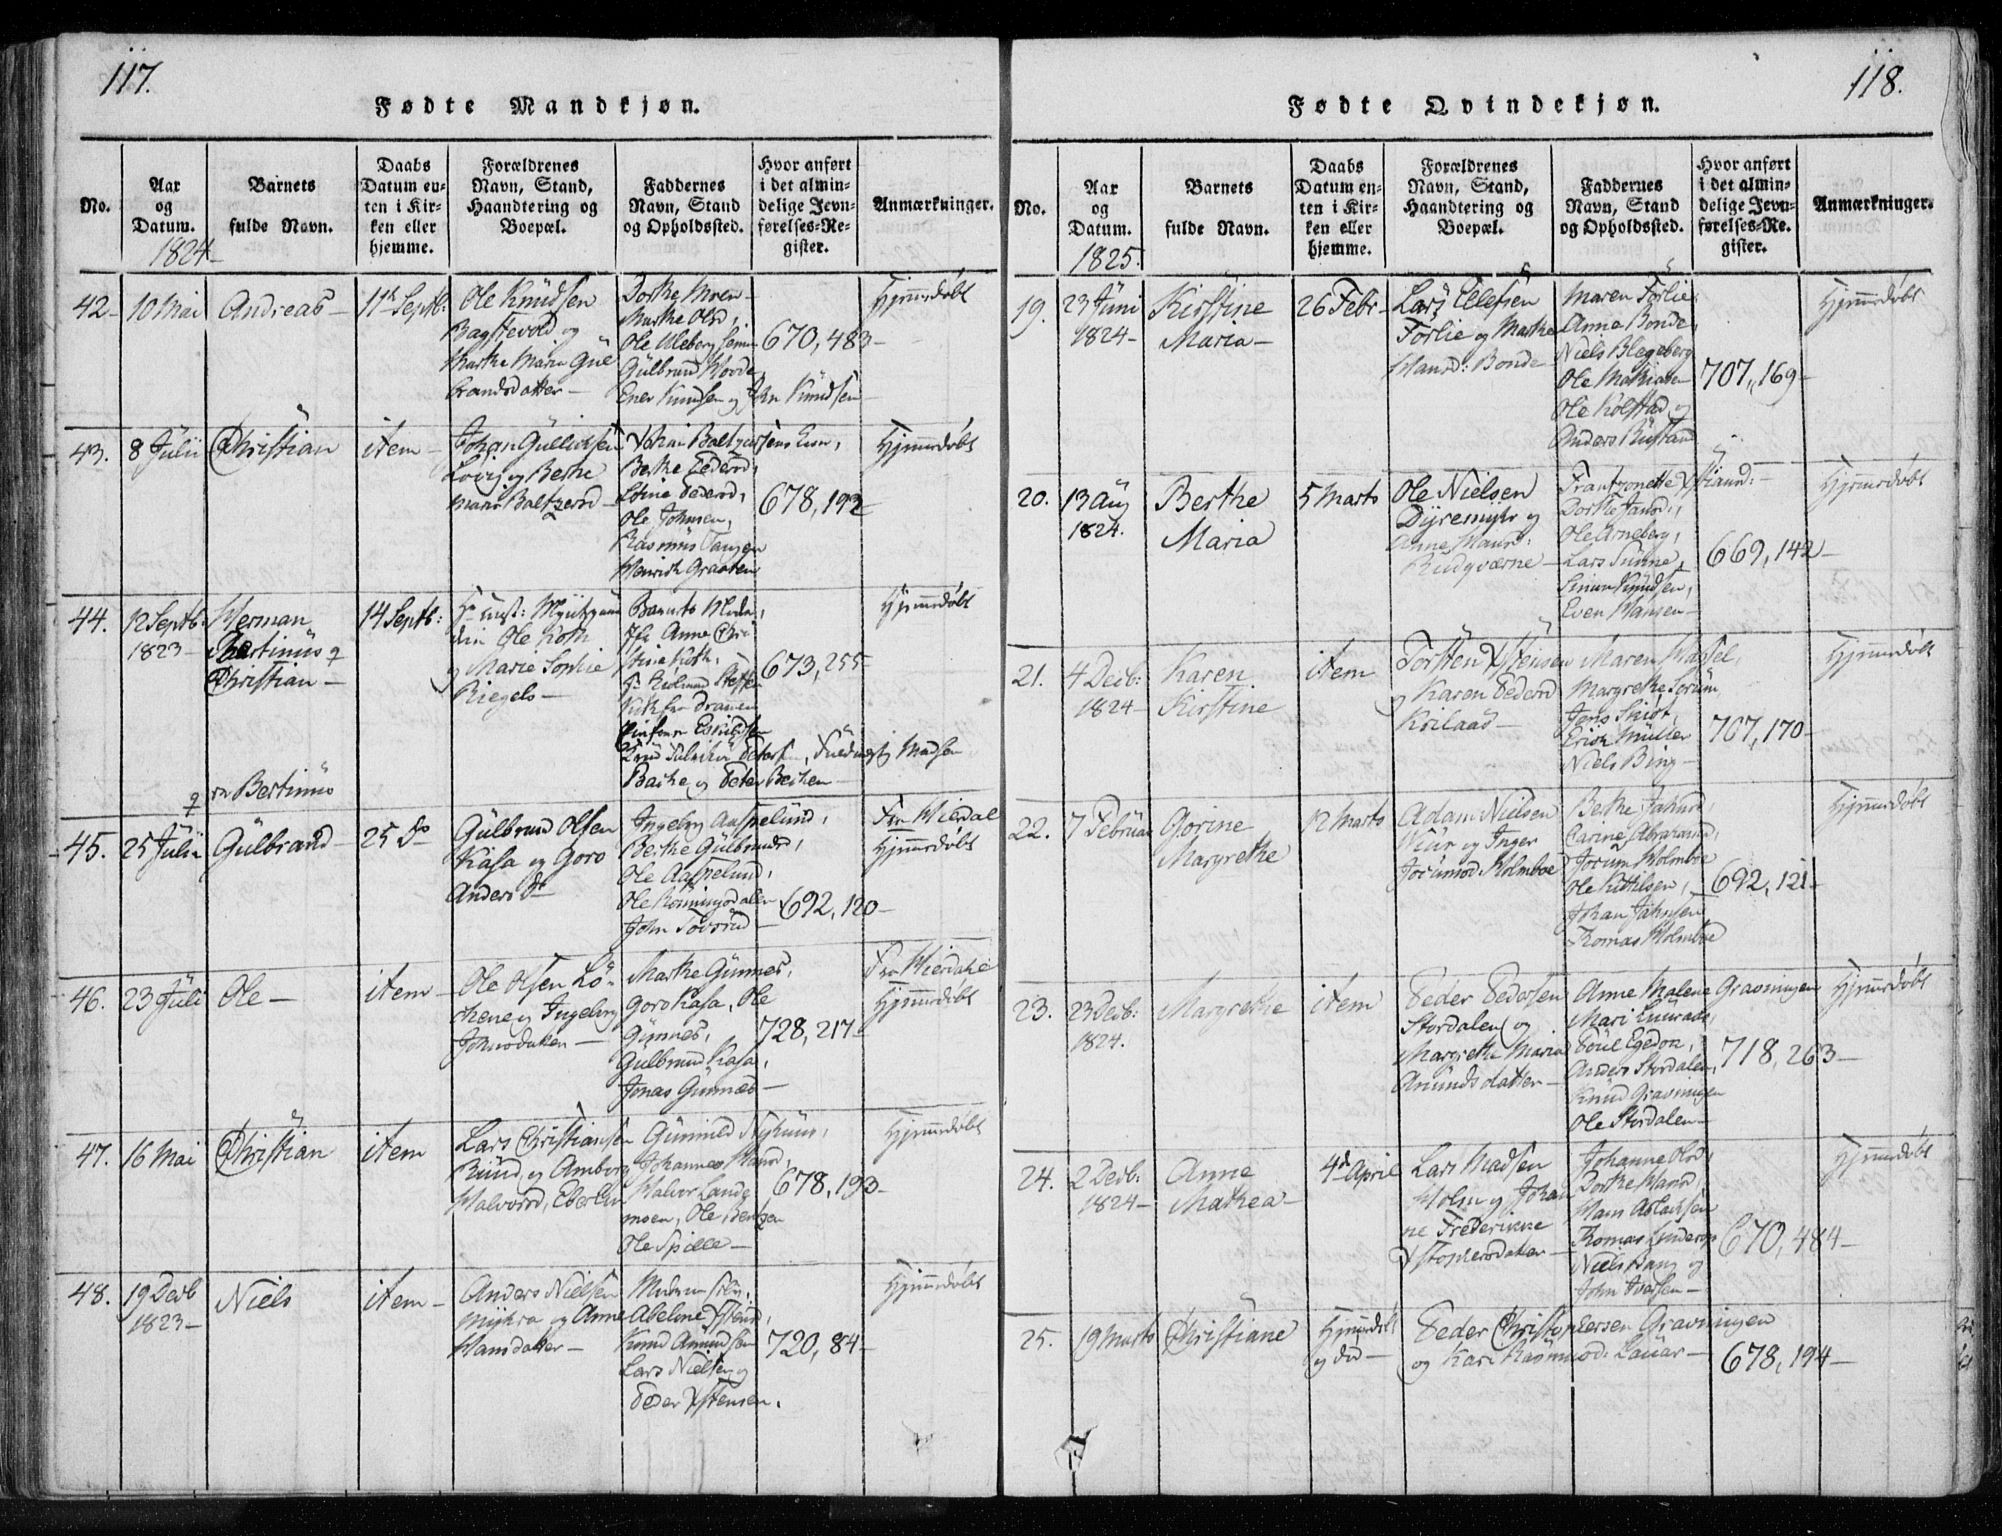 117.
Fødte Mandkjøn.
No.
Aar
og
Datum.
1824
Barnets
fulde Navn.
Daabs
Datum en-
ten i Kir-
ken eller
hjemme.
Forældrenes
Navn, Stand,
Haandtering og
Boepæl.
Faddernes
Navn, Stand
og Opholdssted.
Hvor anført
i det almin-
delige Jevn-
førelses-Re-
gister.
Anmærkninger.
42 10 Mai
Andreas
11te Septb:
Ole Knudsen
og
Marthe Marie Gul
brandsdatter
Dorthe Moen
Marthe Olsd,
Ole Uleberg
Gulbrand
Ener Knudsen og Knudsen
670, 483
Hjemmedøbt
43. 8 Julii
Christian
item
Johan Gullichsen
og Berthe
Maria Baltzersd
Berthe Pedersd,
Stine Pedersd,
Ole Johnsen,
Rasmus Tangen
Henrich Graaten
678, 192
Hjemmedøbt
44. 12 Septb:
1823
Herman
Christian
14 Septb:
Ole Koth
og Marie Sophie
Riegels
Barnets Moder,
Anne Chri
stine Koth,
fra Dramen
Petersen, Madsen
og Peter
673, 255
Hjemmedøbt
Bertinus
45. 25 Julii
Gulbrand
25 Do
Gulbrand Olsen
Kasa og Goro
Anders Dr
Ingebrg Aaspelund,
Berthe Gulbrandsd,
Ole Aaspelund,
Ole Kønningsdalen
John
692, 120
Fra Hierdal
Hjemmedøbt
46. 23 Juli
Ole
item
Ole Olsen Lø-
chene og Ingeborg
Johnsdatter
Marthe Gunnes,
Goro Kasa, Ole
Gunnes,
Gulbrand Kasa,
Jonas Gunnæs
728, 217
Fra Hierdahl
Hjemmedøbt
47. 16 Mai
Christian
item
Lars Christiansen
Rund, og Amborg
Halvorsd, Eberlun
Gunnild
Johannes Hansd,
Halvor Lande
moen, Ole Bentzen
Ole Spille
678, 193
Hjemmedøbt
48. 19 Decb
1823
Niels
item
Anders Nielsen
Myhra og Anne
Hansdatter
Abelone
Knud Amundsen
Lars Nielsen og
Peder Xstensen.
720, 84
Hjemmedøbt
118.
Fødte Qvindekjøn.
No.
Aar
og
Datum.
1825.
Barnets
fulde Navn.
Daabs
Datum en-
ten i Kir-
ken eller
hjemme.
Forældrenes
Navn, Stand,
Haandtering og
Boepæl.
Faddernes
Navn, Stand
og Opholdssted.
Hvor anført
i det almin-
delige Jevn-
førelses-Re-
gister.
Anmærkninger.
19. 23 Juni
1824
Kirstine
Maria
26 Febr
Lars Ellefsen
Førlie og Marthe
Hansd: Bonde
Maren Førlie,
Anne Bonde,
Niels Blegeberg
Ole Mathiasen
Ole Kolstad og
Anders Rustand
707, 169
Hjemmedøbt
20. 13 Aug
1824.
Berthe
Maria
5 Marts
Ole Nielsen
Dyremyhr og
Anne Hansd:
Rudqværne
Frantzonette Xstiansd:
Dorthe Jansd:,
Ole Arneberg,
Lars Sunne,
Simon Knudsen,
Even Hansen
669, 142
Hjemmedøbt
21. 4 Decb:
1824
Karen
Kirstine
item
Torsten Xstensen
og Karen Pedersd
Korlaad
Maren Hassel,
Margrethe Sørum
Jens Smidt,
Erich Müller
Niels Bing
707, 170
Hjemmedøbt
22. 7 Februar
Gorine
Margrethe
12 Marts
Adam Nielsen
og Inger
Jørumsd Holmboe
Bethe Jahnsd,
Carine Abrahamsd,
Jorum Holmboe
Ole Kittilsen,
Johan Jahnsen
Thomas Holmboe
692, 121
Hjemmedøbt
23. 23 Decb:
1824.
Margrethe
item
Peder Pedersen
Stordalen og
Margrethe Maria
Amunds datter
Anne Malene Gravningen
Mari
Poul Egedon,
Anders Stordalen,
Knud Gravningen
Ole Stordalen
718, 263
Hjemmedøbt
24. 2 Decb:
1824
Anne
Mathea
4de April
Lars Madsen
Holm og Johan
ne Frederikke
Xstophersdatter
Johanne Olsd,
Dorthe Hansd,
Hans Aslachsen
Thomas Linderup
Niels Bang og
John Iversen
670, 484
Hjemmedøbt
25. 19 Marts
Christiane
Hjemmedøbt
og død
Peder Christophersen Gravningen
og Kari Rasmusd: Lauar
678, 194